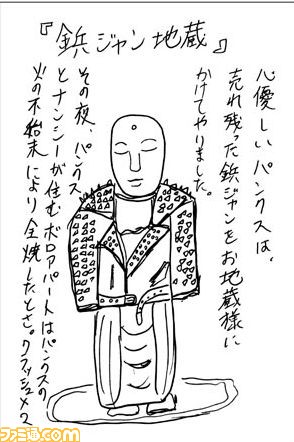 『鋲ジャン地蔵』
心優しいパンクスは、
売れ残った鋲ジャンをお地蔵様に
かけてやりました。
その夜、パンクス
とナンシーが住むボロアパートはパンクスの
火の不始末により全焼したとさ。クラッシュメクス
ファミ通.com